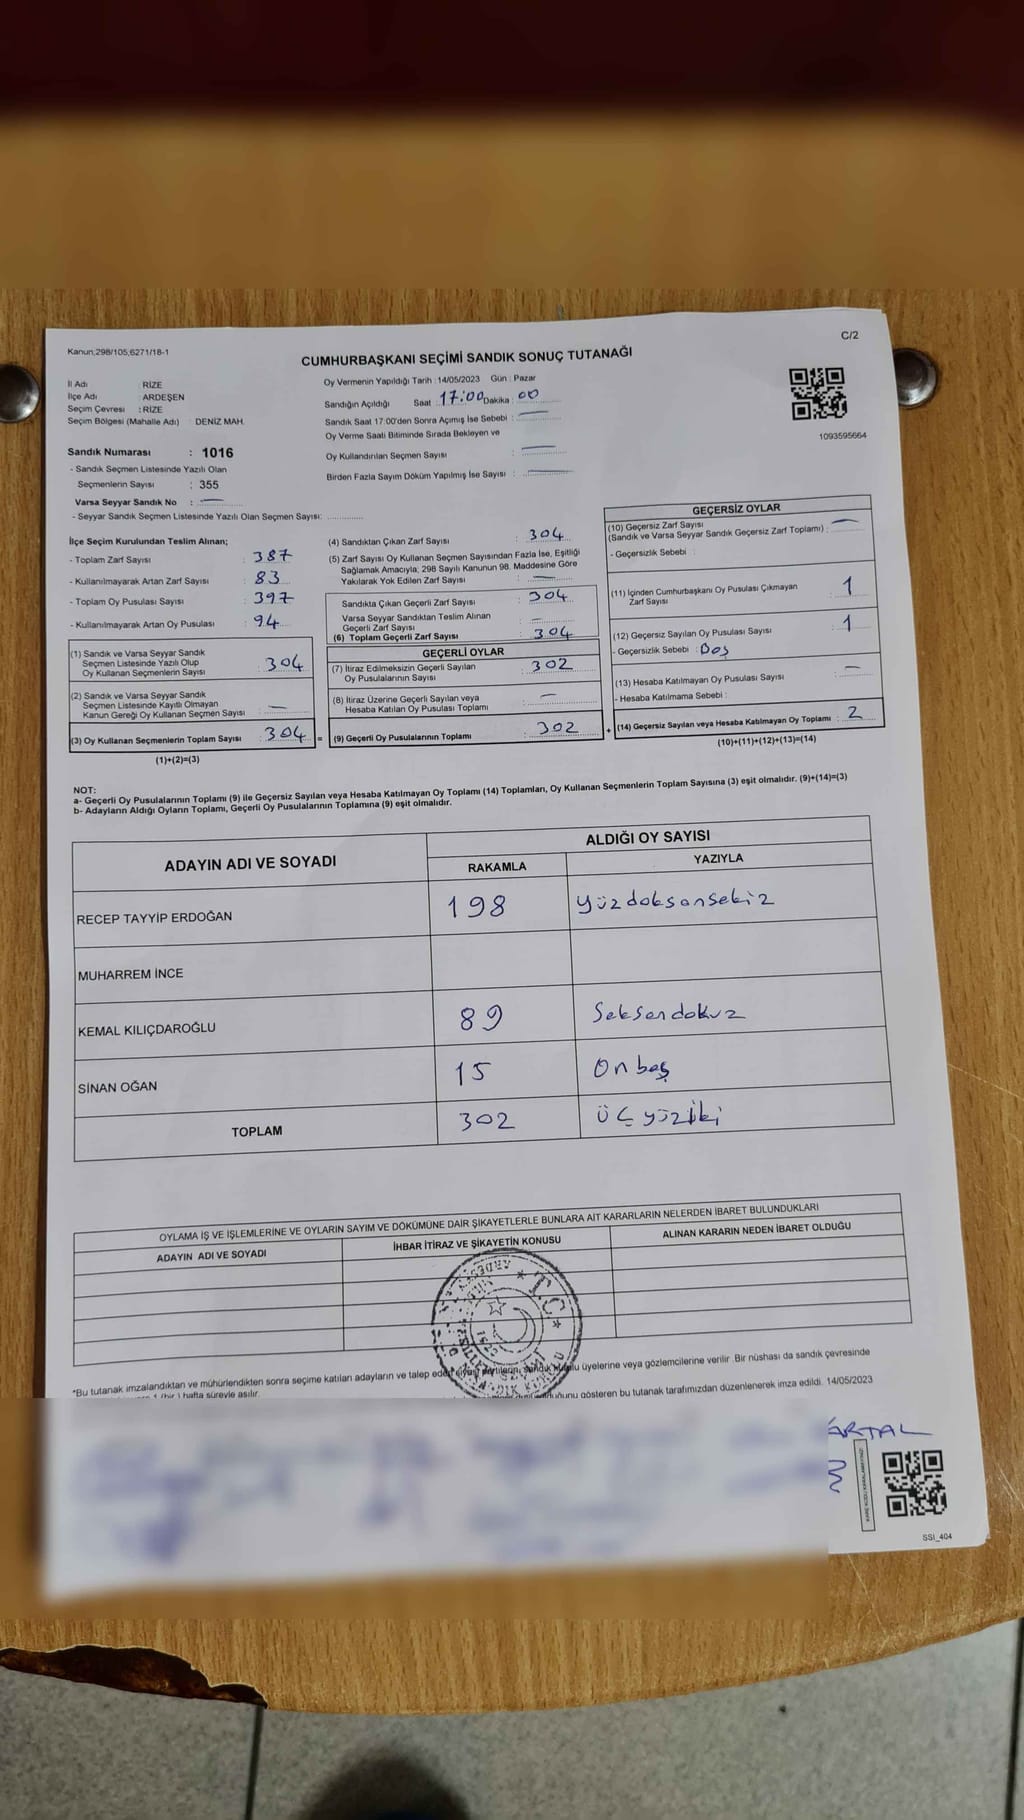 Kanun;298/105;6271/18-1
C/2
CUMHURBAŞKANI SEÇİMİ SANDIK SONUÇ TUTANAĞI
İl Adı : RİZE
İlçe Adı : ARDEŞEN
Seçim Çevresi : RİZE
Seçim Bölgesi (Mahalle Adı) : DENİZ MAH.
Sandık Numarası : 1016
- Sandık Seçmen Listesinde Yazılı Olan
Seçmenlerin Sayısı : 355
Varsa Seyyar Sandık No : —
- Seyyar Sandık Seçmen Listesinde Yazılı Olan Seçmen Sayısı: ............
Oy Vermenin Yapıldığı Tarih : 14/05/2023 Gün : Pazar
Sandığın Açıldığı Saat : 17:00 Dakika : 00
Sandık Saat 17:00'den Sonra Açımış İse Sebebi : —
Oy Verme Saati Bitiminde Sırada Bekleyen ve
Oy Kullandırılan Seçmen Sayısı : —
Birden Fazla Sayım Döküm Yapılmış İse Sayısı : —
1093595664
İlçe Seçim Kurulundan Teslim Alınan;
- Toplam Zarf Sayısı : 387
- Kullanılmayarak Artan Zarf Sayısı : 83
- Toplam Oy Pusulası Sayısı : 397
- Kullanılmayarak Artan Oy Pusulası : 94
(1) Sandık ve Varsa Seyyar Sandık
Seçmen Listesinde Yazılı Olup
Oy Kullanan Seçmenlerin Sayısı : 304
(2) Sandık ve Varsa Seyyar Sandık
Seçmen Listesinde Kayıtlı Olmayan
Kanun Gereği Oy Kullanan Seçmen Sayısı : —
(3) Oy Kullanan Seçmenlerin Toplam Sayısı : 304 =
(1)+(2)=(3)
(4) Sandıktan Çıkan Zarf Sayısı : 304
(5) Zarf Sayısı Oy Kullanan Seçmen Sayısından Fazla İse, Eşitliği
Sağlamak Amacıyla, 298 Sayılı Kanunun 98. Maddesine Göre
Yakılarak Yok Edilen Zarf Sayısı : —
Sandıkta Çıkan Geçerli Zarf Sayısı : 304
Varsa Seyyar Sandıktan Teslim Alınan
Geçerli Zarf Sayısı : —
(6) Toplam Geçerli Zarf Sayısı : 304
GEÇERLİ OYLAR
(7) İtiraz Edilmeksizin Geçerli Sayılan
Oy Pusulalarının Sayısı : 302
(8) İtiraz Üzerine Geçerli Sayılan veya
Hesaba Katılan Oy Pusulası Toplamı : —
(9) Geçerli Oy Pusulalarının Toplamı : 302 +
GEÇERSİZ OYLAR
(10) Geçersiz Zarf Sayısı
(Sandık ve Varsa Seyyar Sandık Geçersiz Zarf Toplamı) : —
- Geçersizlik Sebebi :
(11) İçinden Cumhurbaşkanı Oy Pusulası Çıkmayan
Zarf Sayısı : 1
(12) Geçersiz Sayılan Oy Pusulası Sayısı : 1
- Geçersizlik Sebebi : Boş
(13) Hesaba Katılmayan Oy Pusulası Sayısı : —
- Hesaba Katılmama Sebebi :
(14) Geçersiz Sayılan veya Hesaba Katılmayan Oy Toplamı : 2
(10)+(11)+(12)+(13)=(14)
NOT:
a- Geçerli Oy Pusulalarının Toplamı (9) ile Geçersiz Sayılan veya Hesaba Katılmayan Oy Toplamı (14) Toplamları, Oy Kullanan Seçmenlerin Toplam Sayısına (3) eşit olmalıdır. (9)+(14)=(3)
b- Adayların Aldığı Oyların Toplamı, Geçerli Oy Pusulalarının Toplamına (9) eşit olmalıdır.
ADAYIN ADI VE SOYADI ALDIĞI OY SAYISI
RAKAMLA YAZIYLA
RECEP TAYYİP ERDOĞAN 198 yüzdoksansekiz
MUHARREM İNCE
KEMAL KILIÇDAROĞLU 89 Seksendokuz
SİNAN OĞAN 15 On beş
TOPLAM 302 üç yüziki
OYLAMA İŞ VE İŞLEMLERİNE VE OYLARIN SAYIM VE DÖKÜMÜNE DAİR ŞİKAYETLERLE BUNLARA AİT KARARLARIN NELERDEN İBARET BULUNDUKLARI
ADAYIN ADI VE SOYADI İHBAR İTİRAZ VE ŞİKAYETİN KONUSU ALINAN KARARIN NEDEN İBARET OLDUĞU
T.C.
*Bu tutanak imzalandıktan ve mühürlendikten sonra seçime katılan adayların ve talep eden siyasi partilerin, sandık kurulu üyelerine veya gözlemcilerine verilir .Bir nüshası da sandık çevresinde
1 (bir ) hafta süreyle asılır.
gösteren bu tutanak tarafımızdan düzenlenerek imza edildi. 14/05/2023
ARTAL
SSI_404